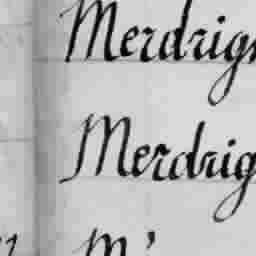 Merdrig
Merdrig
M'